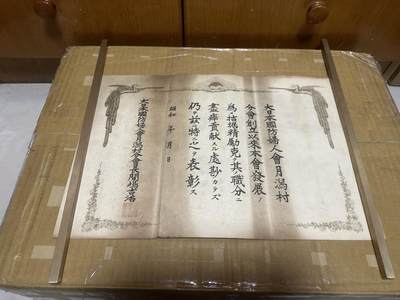 大日本國防婦人會月潟村
分會創立以來本會發展ノ
為メ拮据精勵克ク其職分ニ
盡瘁貢献スル處尠カラズ
仍テ茲ニ特ニ之ヲ表彰ス
昭和 年 月 日
大日本國防婦人會月潟村分會長